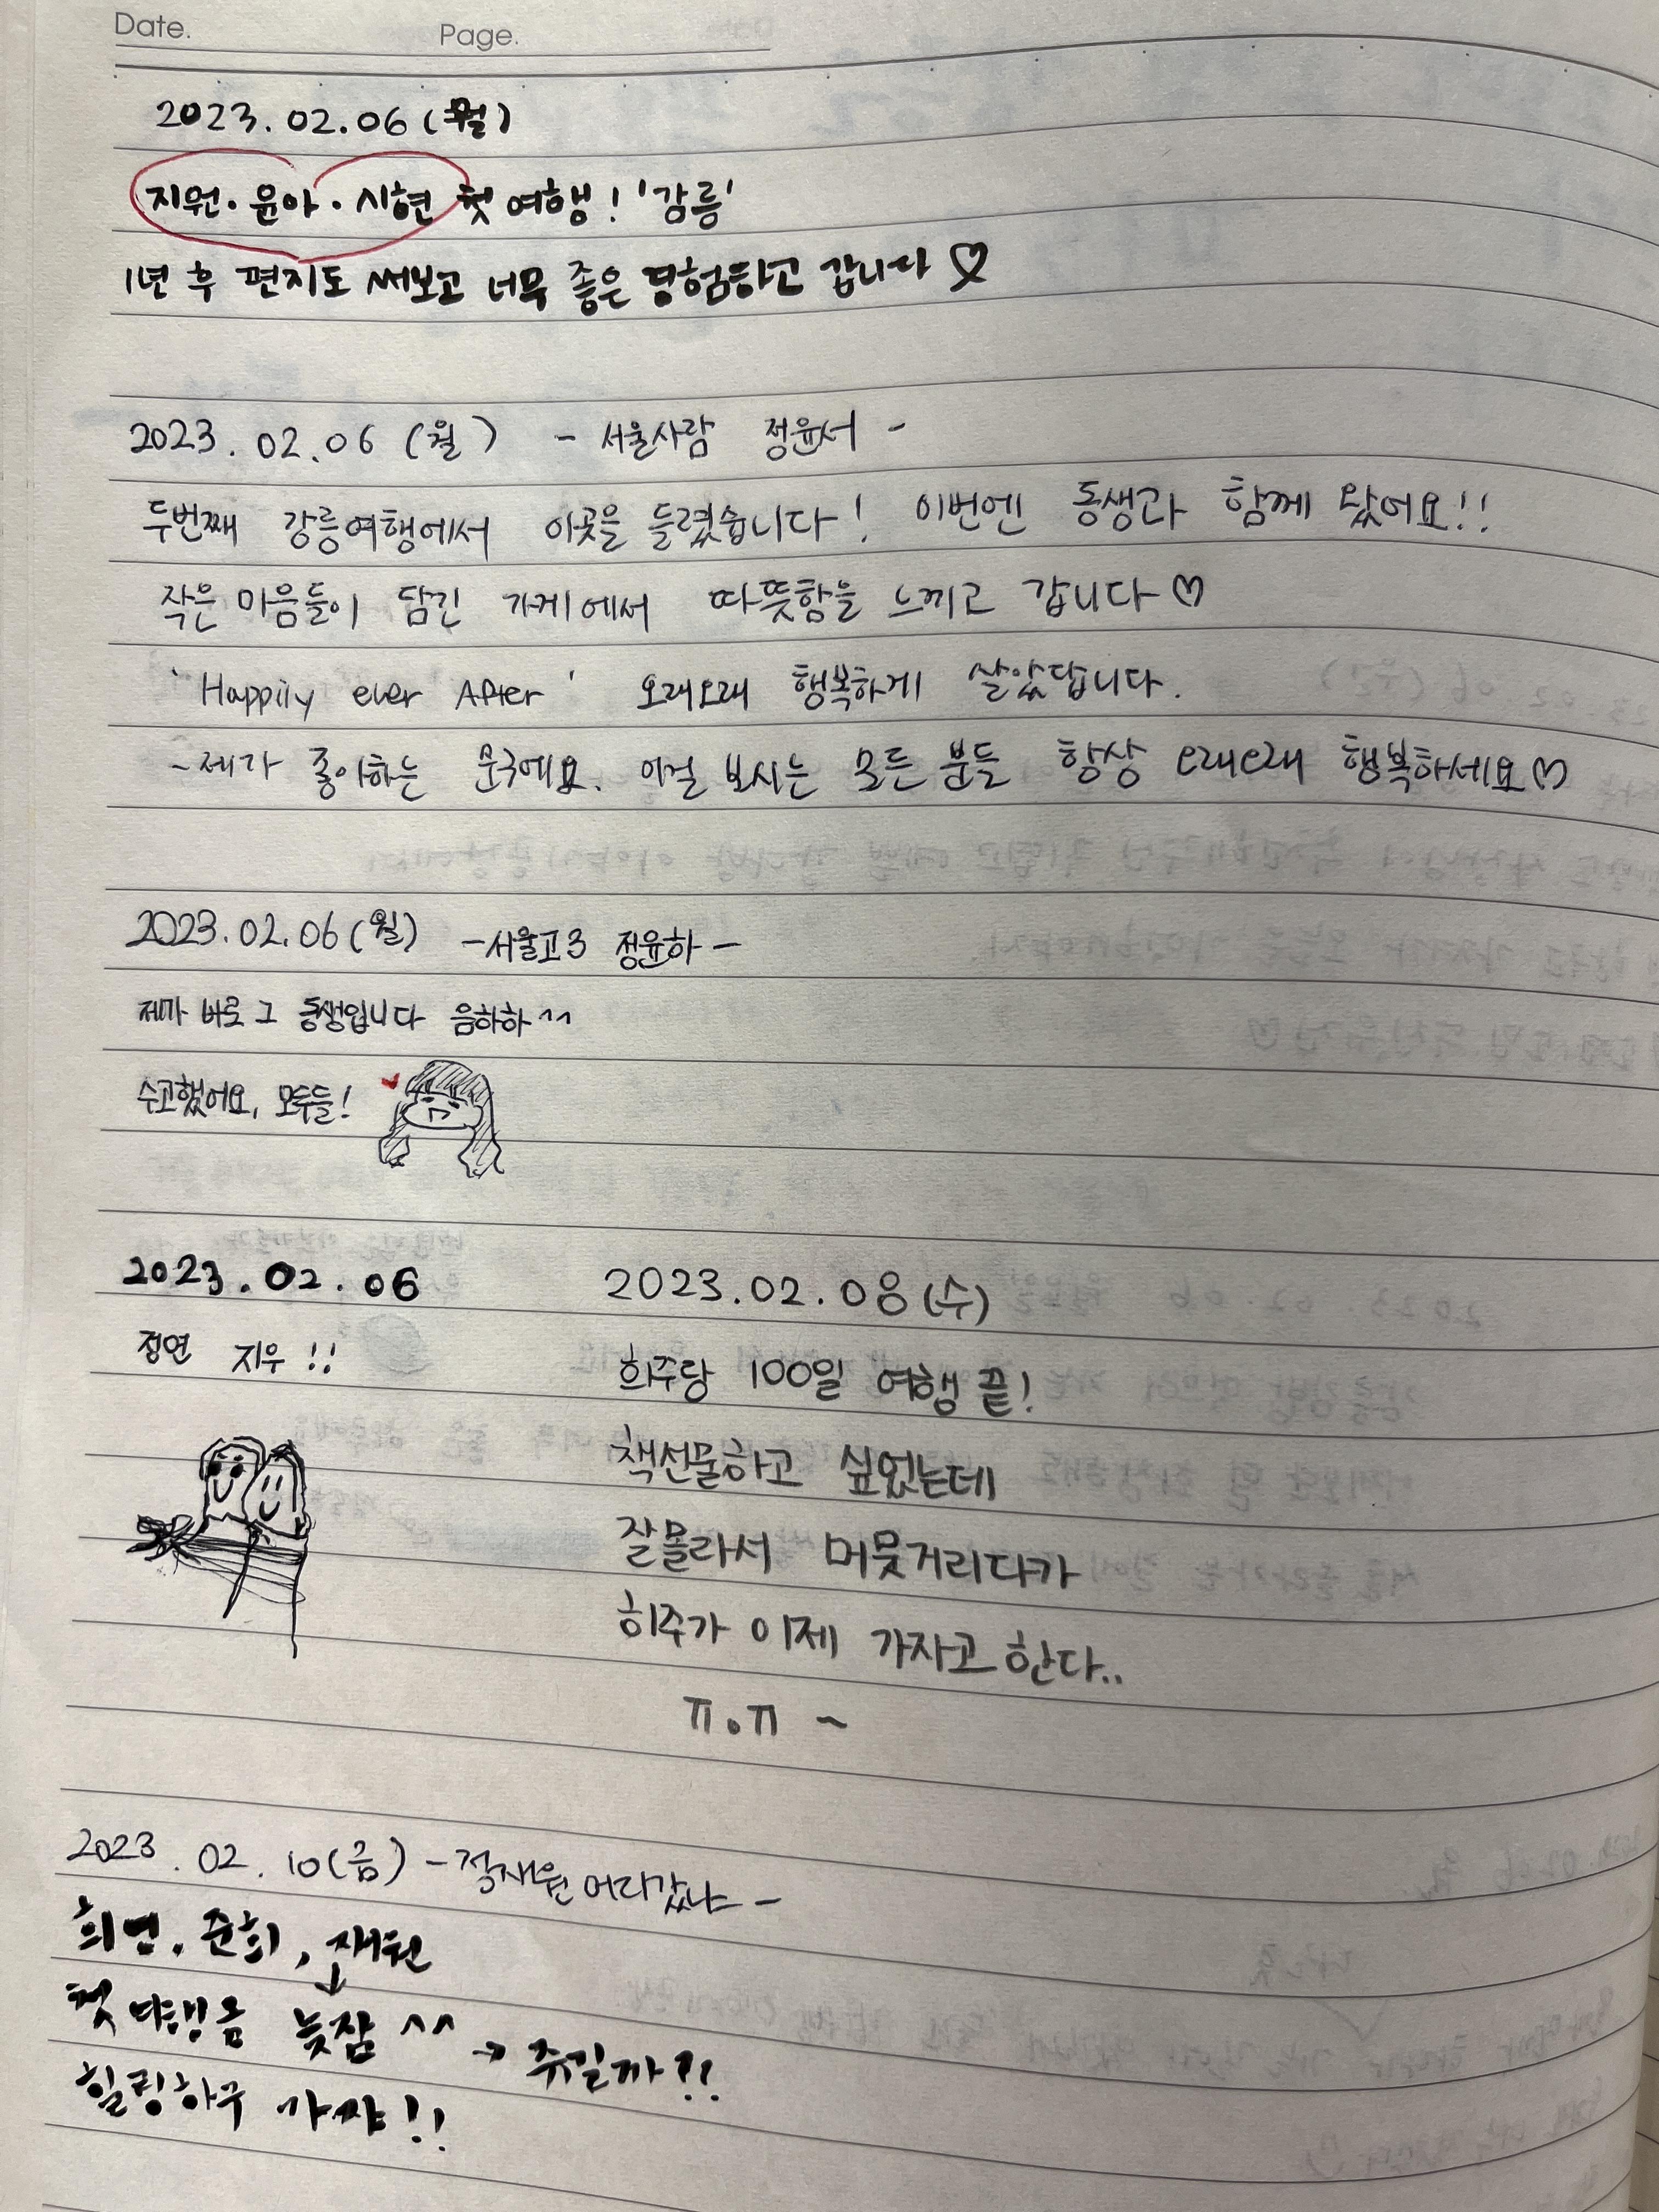 Date. Page.
2023.02.06 (월)
지원·윤아·시현 첫 여행! '강릉'
1년 후 편지도 써보고 너무 좋은 경험하고 갑니다 ♡
2023.02.06 (월) - 서울사람 정윤서 -
두번째 강릉여행에서 이곳을 들렸습니다! 이번엔 동생과 함께 왔어요!!
작은 마음들이 담긴 가게에서 따뜻함을 느끼고 갑니다♡
'Happily ever After' 오래오래 행복하게 살았답니다.
-제가 좋아하는 문구에요. 이걸 보시는 모든 분들 항상 오래오래 행복하세요♡
2023.02.06(월) -서울고3 정윤하-
제가 바로 그 동생입니다 음하하^^
수고했어요, 모두들!
2023.02.06
정연 지우!!
2023.02.08(수)
희주랑 100일 여행 끝!
책선물하고 싶었는데
잘몰라서 머뭇거리다가
희주가 이제 가자고 한다..
ㅠ.ㅠ ~
2023.02.10(금) -정재원 어디갔냐-
희연, 준희, 재원
첫 여행 늦잠 ^^ → 쥬길까?!
힐링하구 가쟈!!